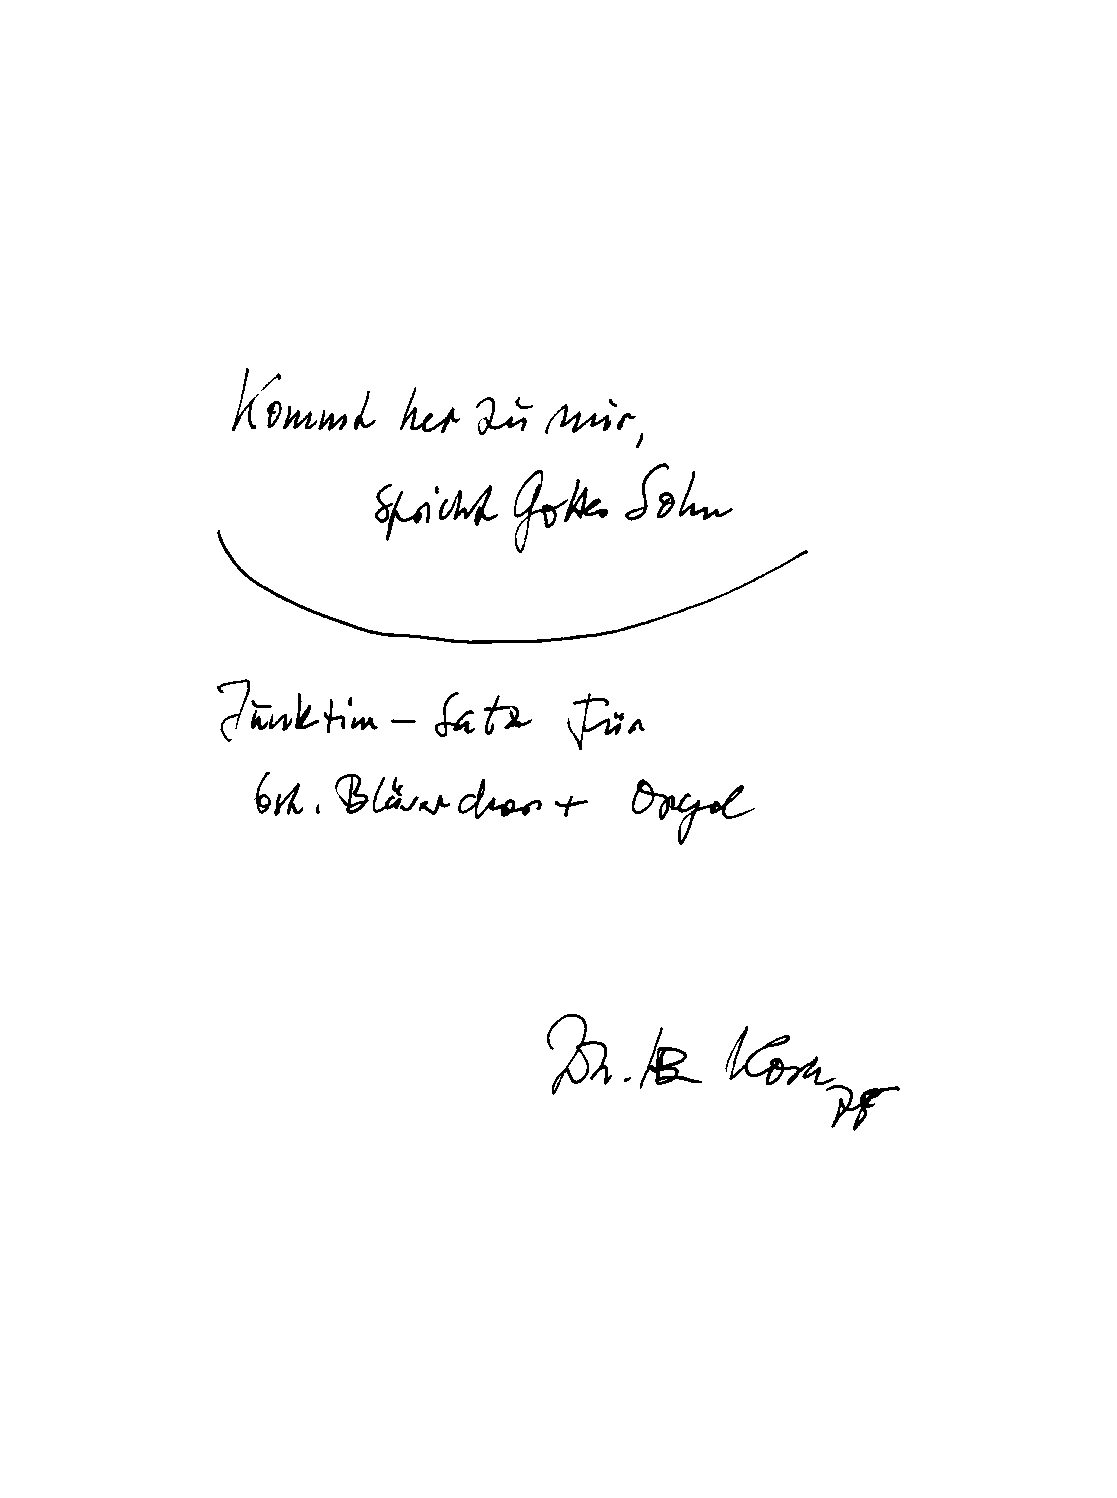 Kommt her zu mir,
spricht Gottes Sohn
Junktim – Satz für
6st. Bläserchor + Orgel
Dr. B Korn